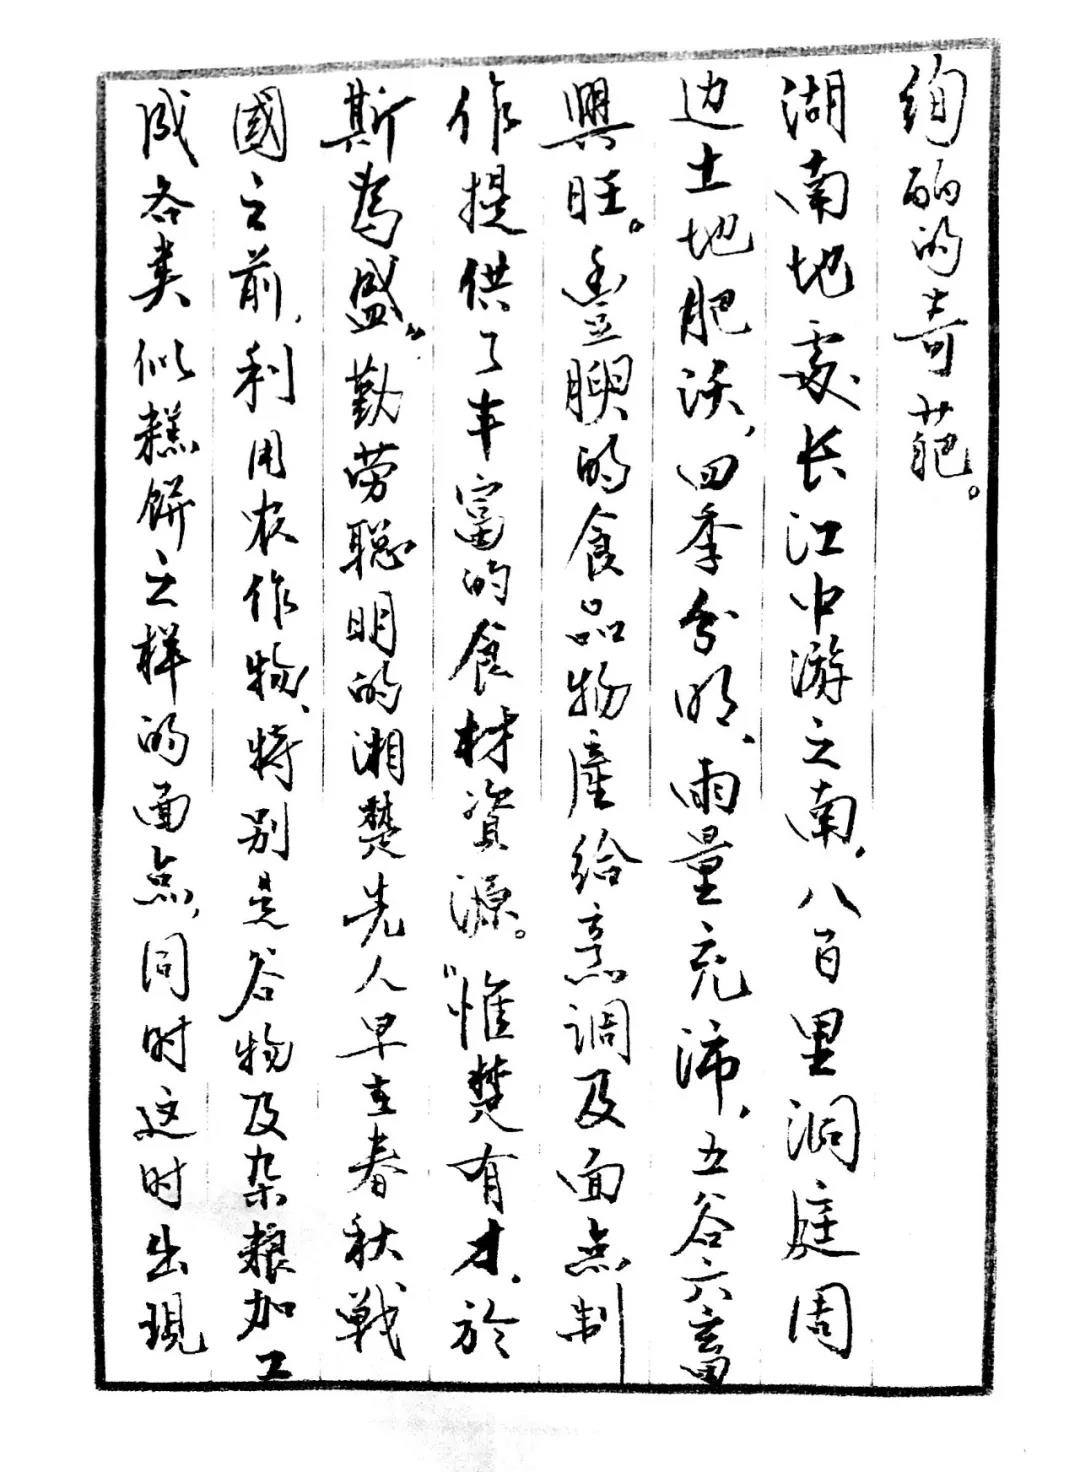 绚丽的奇葩。
湖南地處长江中游之南，八百里洞庭周
边土地肥沃，四季分明、雨量充沛，五谷六畜
興旺。豐腴的食品物產给烹调及面点制
作提供了丰富的食材資源。“惟楚有才，於
斯為盛。”勤劳聪明的湘楚先人早在春秋戰
國之前，利用农作物、特别是谷物及杂粮加工
成各类似糕餅之样的面点，同时这时出現